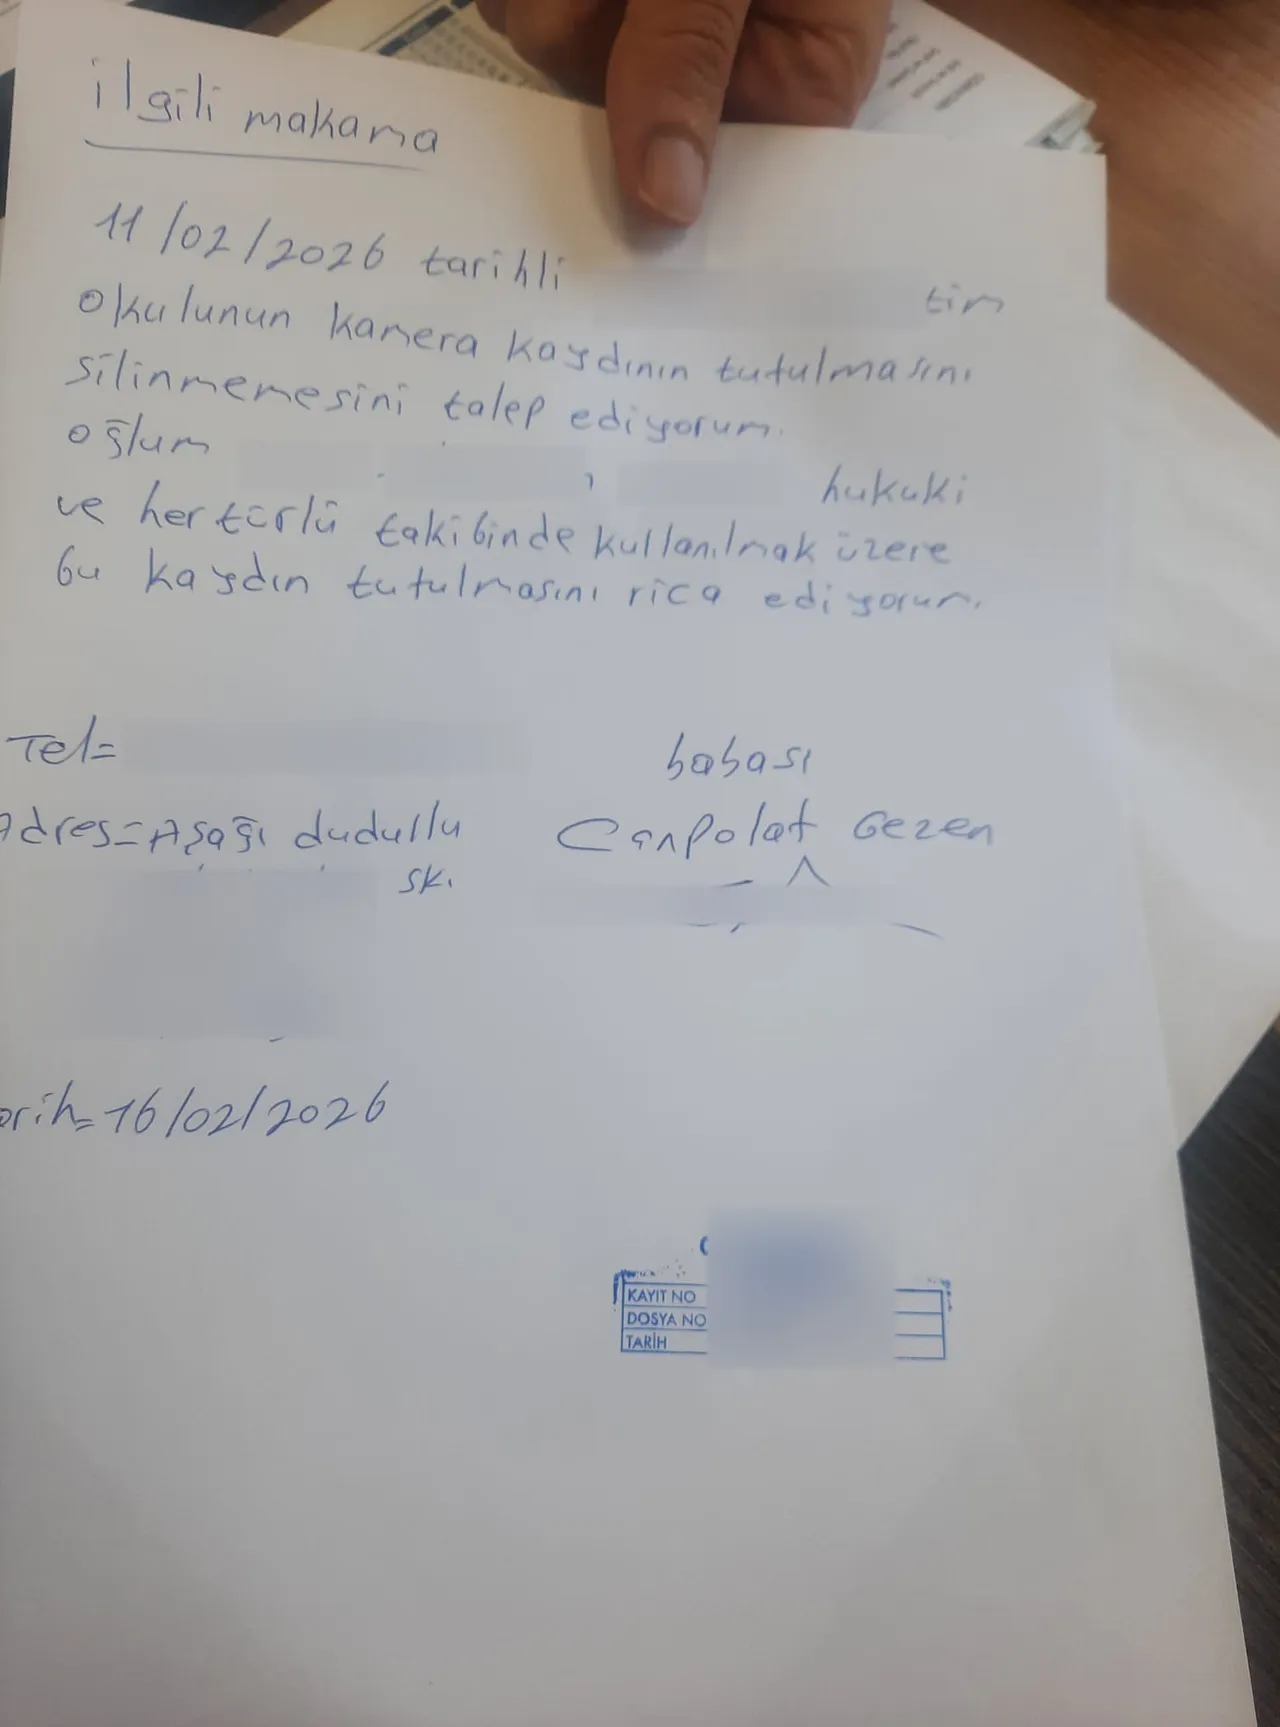 ilgili makama
11/02/2026 tarihli tim
okulunun kamera kaydının tutulmasını
silinmemesini talep ediyorum.
oğlum hukuki
ve her türlü takibinde kullanılmak üzere
bu kaydın tutulmasını rica ediyorum.
Tel=
babası
Adres=Aşağı dudullu
Canpolat Gezen
sk.
arih=16/02/2026
KAYIT NO
DOSYA NO
TARİH